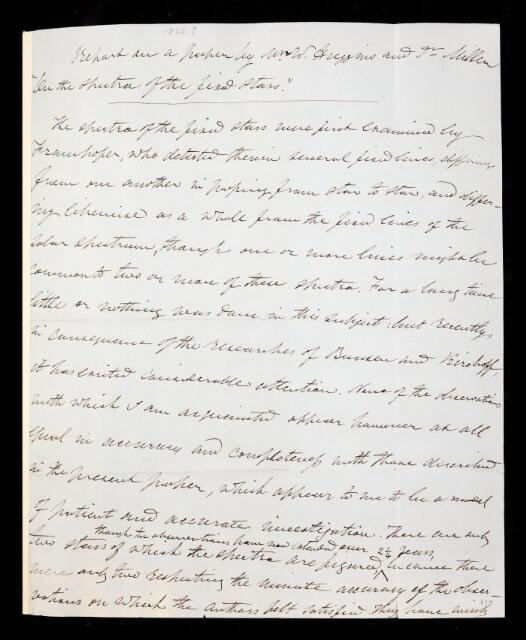 Report on a paper by Mr W. Huggins and Dr Miller
"On the spectra of the fixed stars."
The spectra of the fixed stars were first examined by
Fraunhofer, who detected therein several fixed lines, differing
from one another in passing from star to star, and differ-
ing likewise as a whole from the fixed lines of the
solar spectrum, though one or more lines might be
common to two or more of these spectra. For a long time
little or nothing was done in this subject; but recently,
in consequence of the researches of Bunsen and Kirchoff,
it has excited considerable attention. None of the observations
with which I am acquainted appear however at all
equal in accuracy and completeness with those described
in the present paper, which appear to me to be a model
of patient and accurate investigation. There are only
though the observations have now extended over 2¼ years,
two stars of which the spectra are figured, because there
were only two respecting the minute accuracy of the obser-
vations on which the authors felt satisfied. They have merely